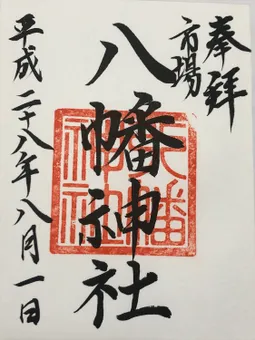 奉拝
市場
八幡神社
平成二十八年八月一日
八幡神社